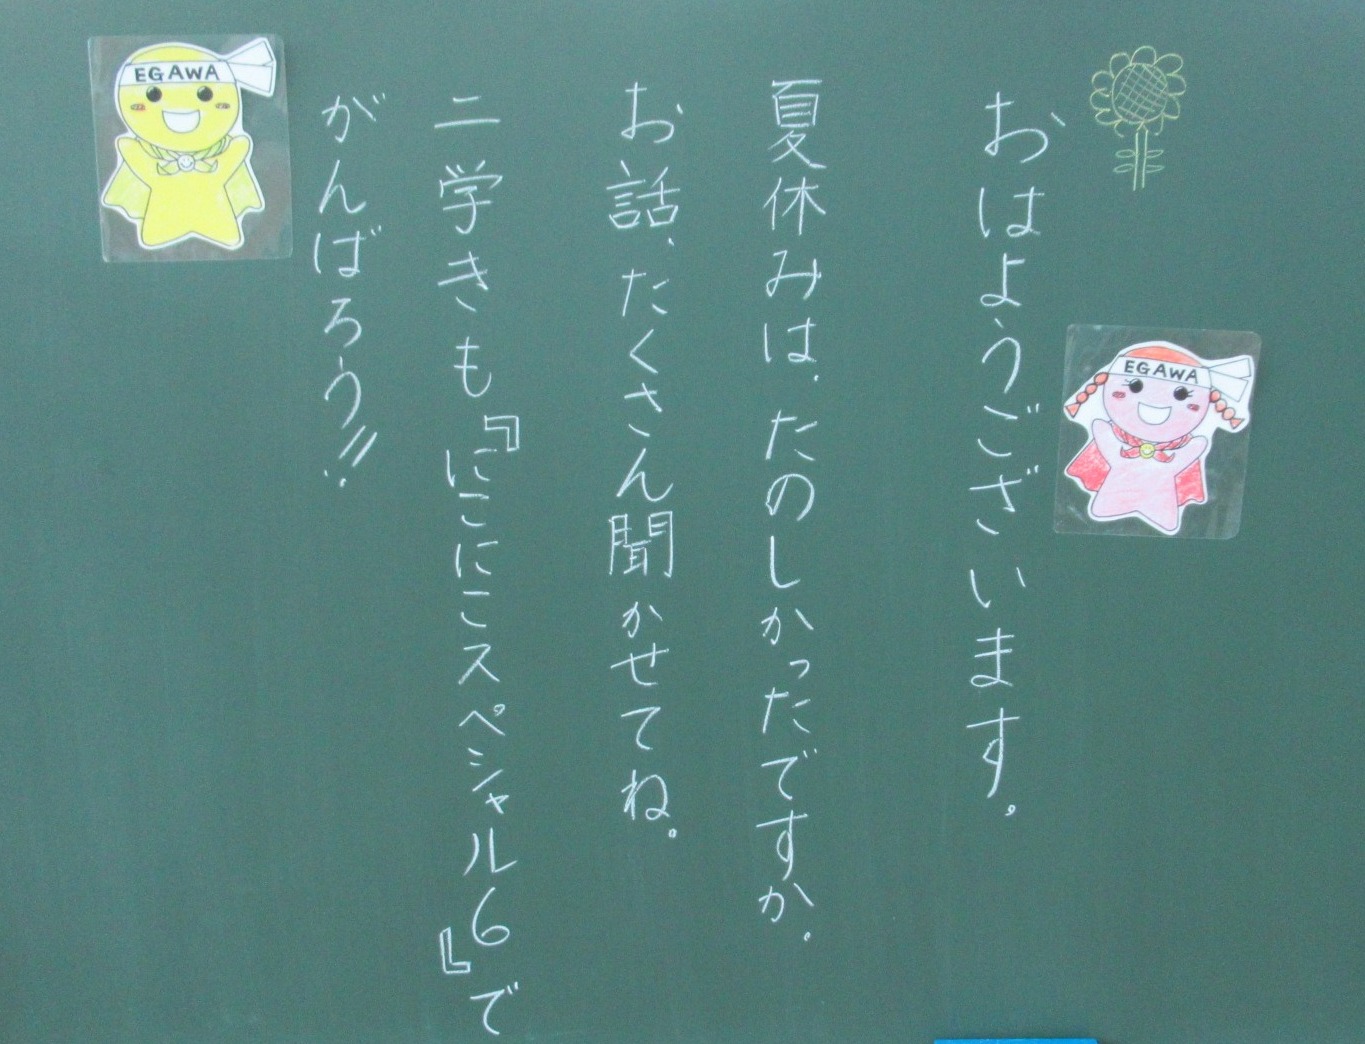 おはようございます。
夏休みは、たのしかったですか。
お話、たくさん聞かせてね。
二学きも『にこにこスペシャル6』で
がんばろう!!
EGAWA
EGAWA